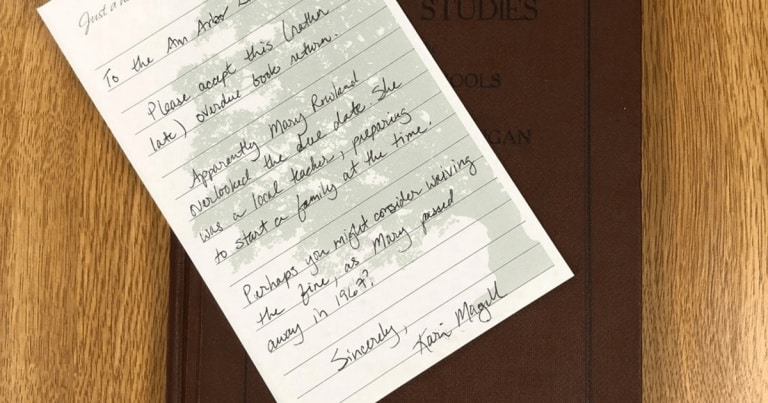 Just a
To the Ann Arbor
Please accept this (rather
late) overdue book return.
Apparently Mary Rowland
overlooked the due date. She
was a local teacher, preparing
to start a family at the time
Perhaps you might consider waiving
the fine, as Mary passed
away in 1967?
Sincerely,
Kari Magill
STUDIES
OOLS
GAN